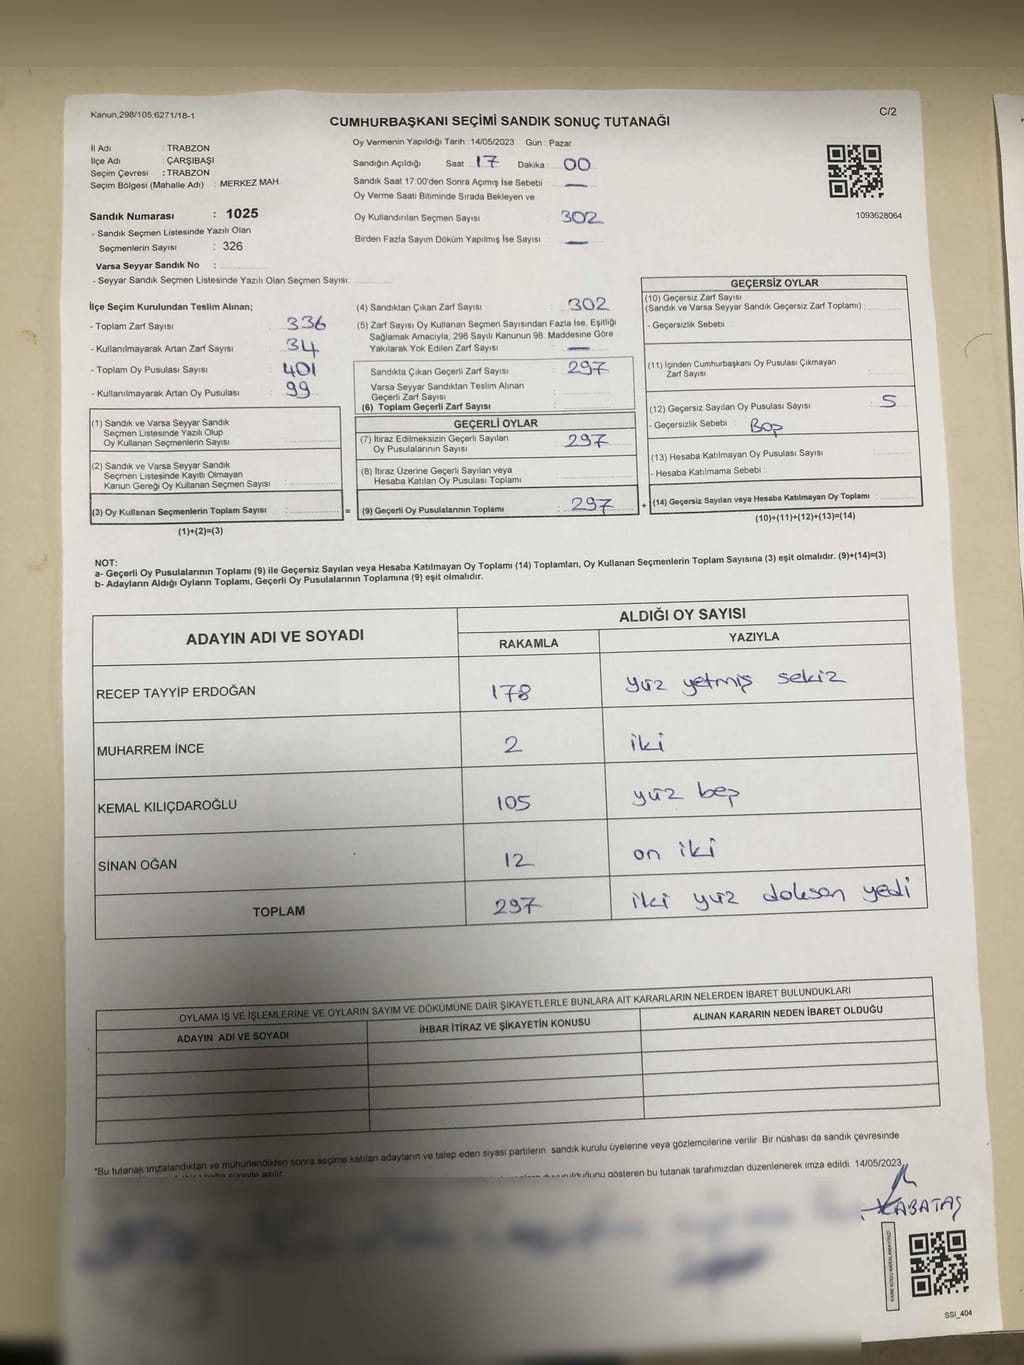 Kanun,298/105,6271/18-1
C/2
CUMHURBAŞKANI SEÇİMİ SANDIK SONUÇ TUTANAĞI
İl Adı : TRABZON
İlçe Adı : ÇARŞIBAŞI
Seçim Çevresi : TRABZON
Seçim Bölgesi (Mahalle Adı) : MERKEZ MAH.
Sandık Numarası : 1025
- Sandık Seçmen Listesinde Yazılı Olan
Seçmenlerin Sayısı : 326
Varsa Seyyar Sandık No :
- Seyyar Sandık Seçmen Listesinde Yazılı Olan Seçmen Sayısı:
Oy Vermenin Yapıldığı Tarih : 14/05/2023 Gün : Pazar
Sandığın Açıldığı Saat : 17 Dakika : 00
Sandık Saat 17:00'den Sonra Açımış İse Sebebi : —
Oy Verme Saati Bitiminde Sırada Bekleyen ve
Oy Kullandırılan Seçmen Sayısı : 302
Birden Fazla Sayım Döküm Yapılmış İse Sayısı : —
1093628064
İlçe Seçim Kurulundan Teslim Alınan;
- Toplam Zarf Sayısı : 336
- Kullanılmayarak Artan Zarf Sayısı : 34
- Toplam Oy Pusulası Sayısı : 401
- Kullanılmayarak Artan Oy Pusulası : 99
(1) Sandık ve Varsa Seyyar Sandık
Seçmen Listesinde Yazılı Olup
Oy Kullanan Seçmenlerin Sayısı :
(2) Sandık ve Varsa Seyyar Sandık
Seçmen Listesinde Kayıtlı Olmayan
Kanun Gereği Oy Kullanan Seçmen Sayısı :
(3) Oy Kullanan Seçmenlerin Toplam Sayısı : =
(1)+(2)=(3)
(4) Sandıktan Çıkan Zarf Sayısı : 302
(5) Zarf Sayısı Oy Kullanan Seçmen Sayısından Fazla İse, Eşitliği
Sağlamak Amacıyla, 298 Sayılı Kanunun 98. Maddesine Göre
Yakılarak Yok Edilen Zarf Sayısı : —
Sandıkta Çıkan Geçerli Zarf Sayısı : 297
Varsa Seyyar Sandıktan Teslim Alınan
Geçerli Zarf Sayısı :
(6) Toplam Geçerli Zarf Sayısı :
GEÇERLİ OYLAR
(7) İtiraz Edilmeksizin Geçerli Sayılan
Oy Pusulalarının Sayısı : 297
(8) İtiraz Üzerine Geçerli Sayılan veya
Hesaba Katılan Oy Pusulası Toplamı :
(9) Geçerli Oy Pusulalarının Toplamı : 297 +
GEÇERSİZ OYLAR
(10) Geçersiz Zarf Sayısı
(Sandık ve Varsa Seyyar Sandık Geçersiz Zarf Toplamı) :
- Geçersizlik Sebebi :
(11) İçinden Cumhurbaşkanı Oy Pusulası Çıkmayan
Zarf Sayısı :
(12) Geçersiz Sayılan Oy Pusulası Sayısı : 5
- Geçersizlik Sebebi : Boş
(13) Hesaba Katılmayan Oy Pusulası Sayısı :
- Hesaba Katılmama Sebebi :
(14) Geçersiz Sayılan veya Hesaba Katılmayan Oy Toplamı :
(10)+(11)+(12)+(13)=(14)
NOT:
a- Geçerli Oy Pusulalarının Toplamı (9) ile Geçersiz Sayılan veya Hesaba Katılmayan Oy Toplamı (14) Toplamları, Oy Kullanan Seçmenlerin Toplam Sayısına (3) eşit olmalıdır. (9)+(14)=(3)
b- Adayların Aldığı Oyların Toplamı, Geçerli Oy Pusulalarının Toplamına (9) eşit olmalıdır.
ADAYIN ADI VE SOYADI ALDIĞI OY SAYISI
RAKAMLA YAZIYLA
RECEP TAYYİP ERDOĞAN 178 yüz yetmiş sekiz
MUHARREM İNCE 2 iki
KEMAL KILIÇDAROĞLU 105 yüz beş
SİNAN OĞAN 12 on iki
TOPLAM 297 iki yüz doksan yedi
OYLAMA İŞ VE İŞLEMLERİNE VE OYLARIN SAYIM VE DÖKÜMÜNE DAİR ŞİKAYETLERLE BUNLARA AİT KARARLARIN NELERDEN İBARET BULUNDUKLARI
ADAYIN ADI VE SOYADI İHBAR İTİRAZ VE ŞİKAYETİN KONUSU ALINAN KARARIN NEDEN İBARET OLDUĞU
*Bu tutanak imzalandıktan ve mühürlendikten sonra seçime katılan adayların ve talep eden siyasi partilerin sandık kurulu üyelerine veya gözlemcilerine verilir. Bir nüshası da sandık çevresinde
gösteren bu tutanak tarafımızdan düzenlenerek imza edildi. 14/05/2023
KABATAŞ
SSI_404